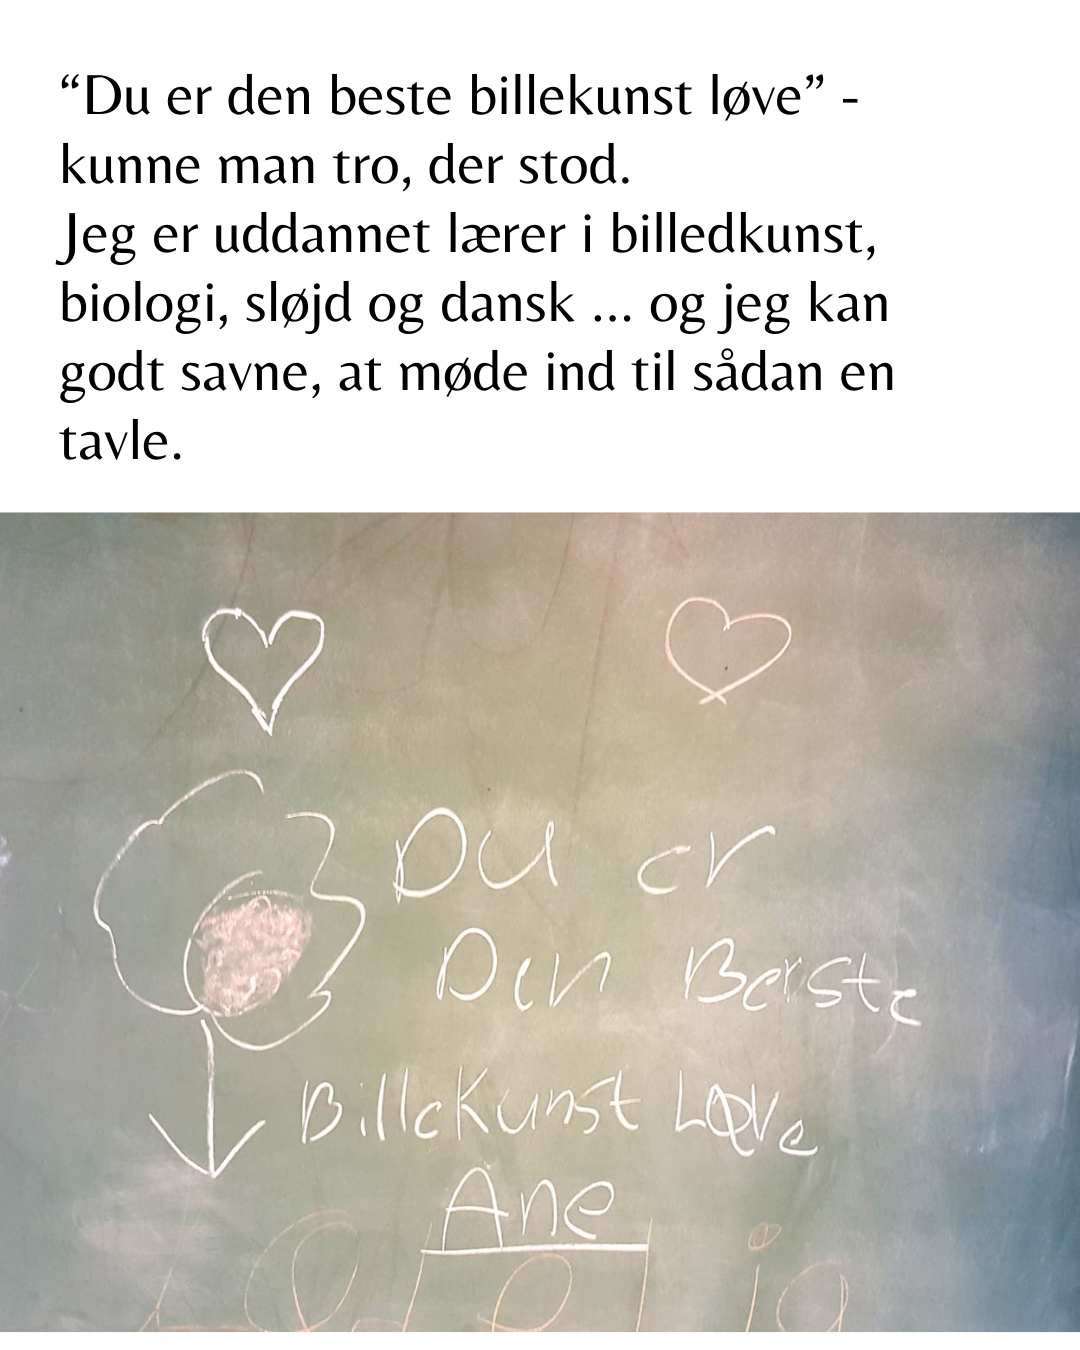 “Du er den beste billekunst løve” -
kunne man tro, der stod.
Jeg er uddannet lærer i billedkunst,
biologi, sløjd og dansk ... og jeg kan
godt savne, at møde ind til sådan en
tavle.
Du er
Den Berste
BilleKunst Løve
Ane